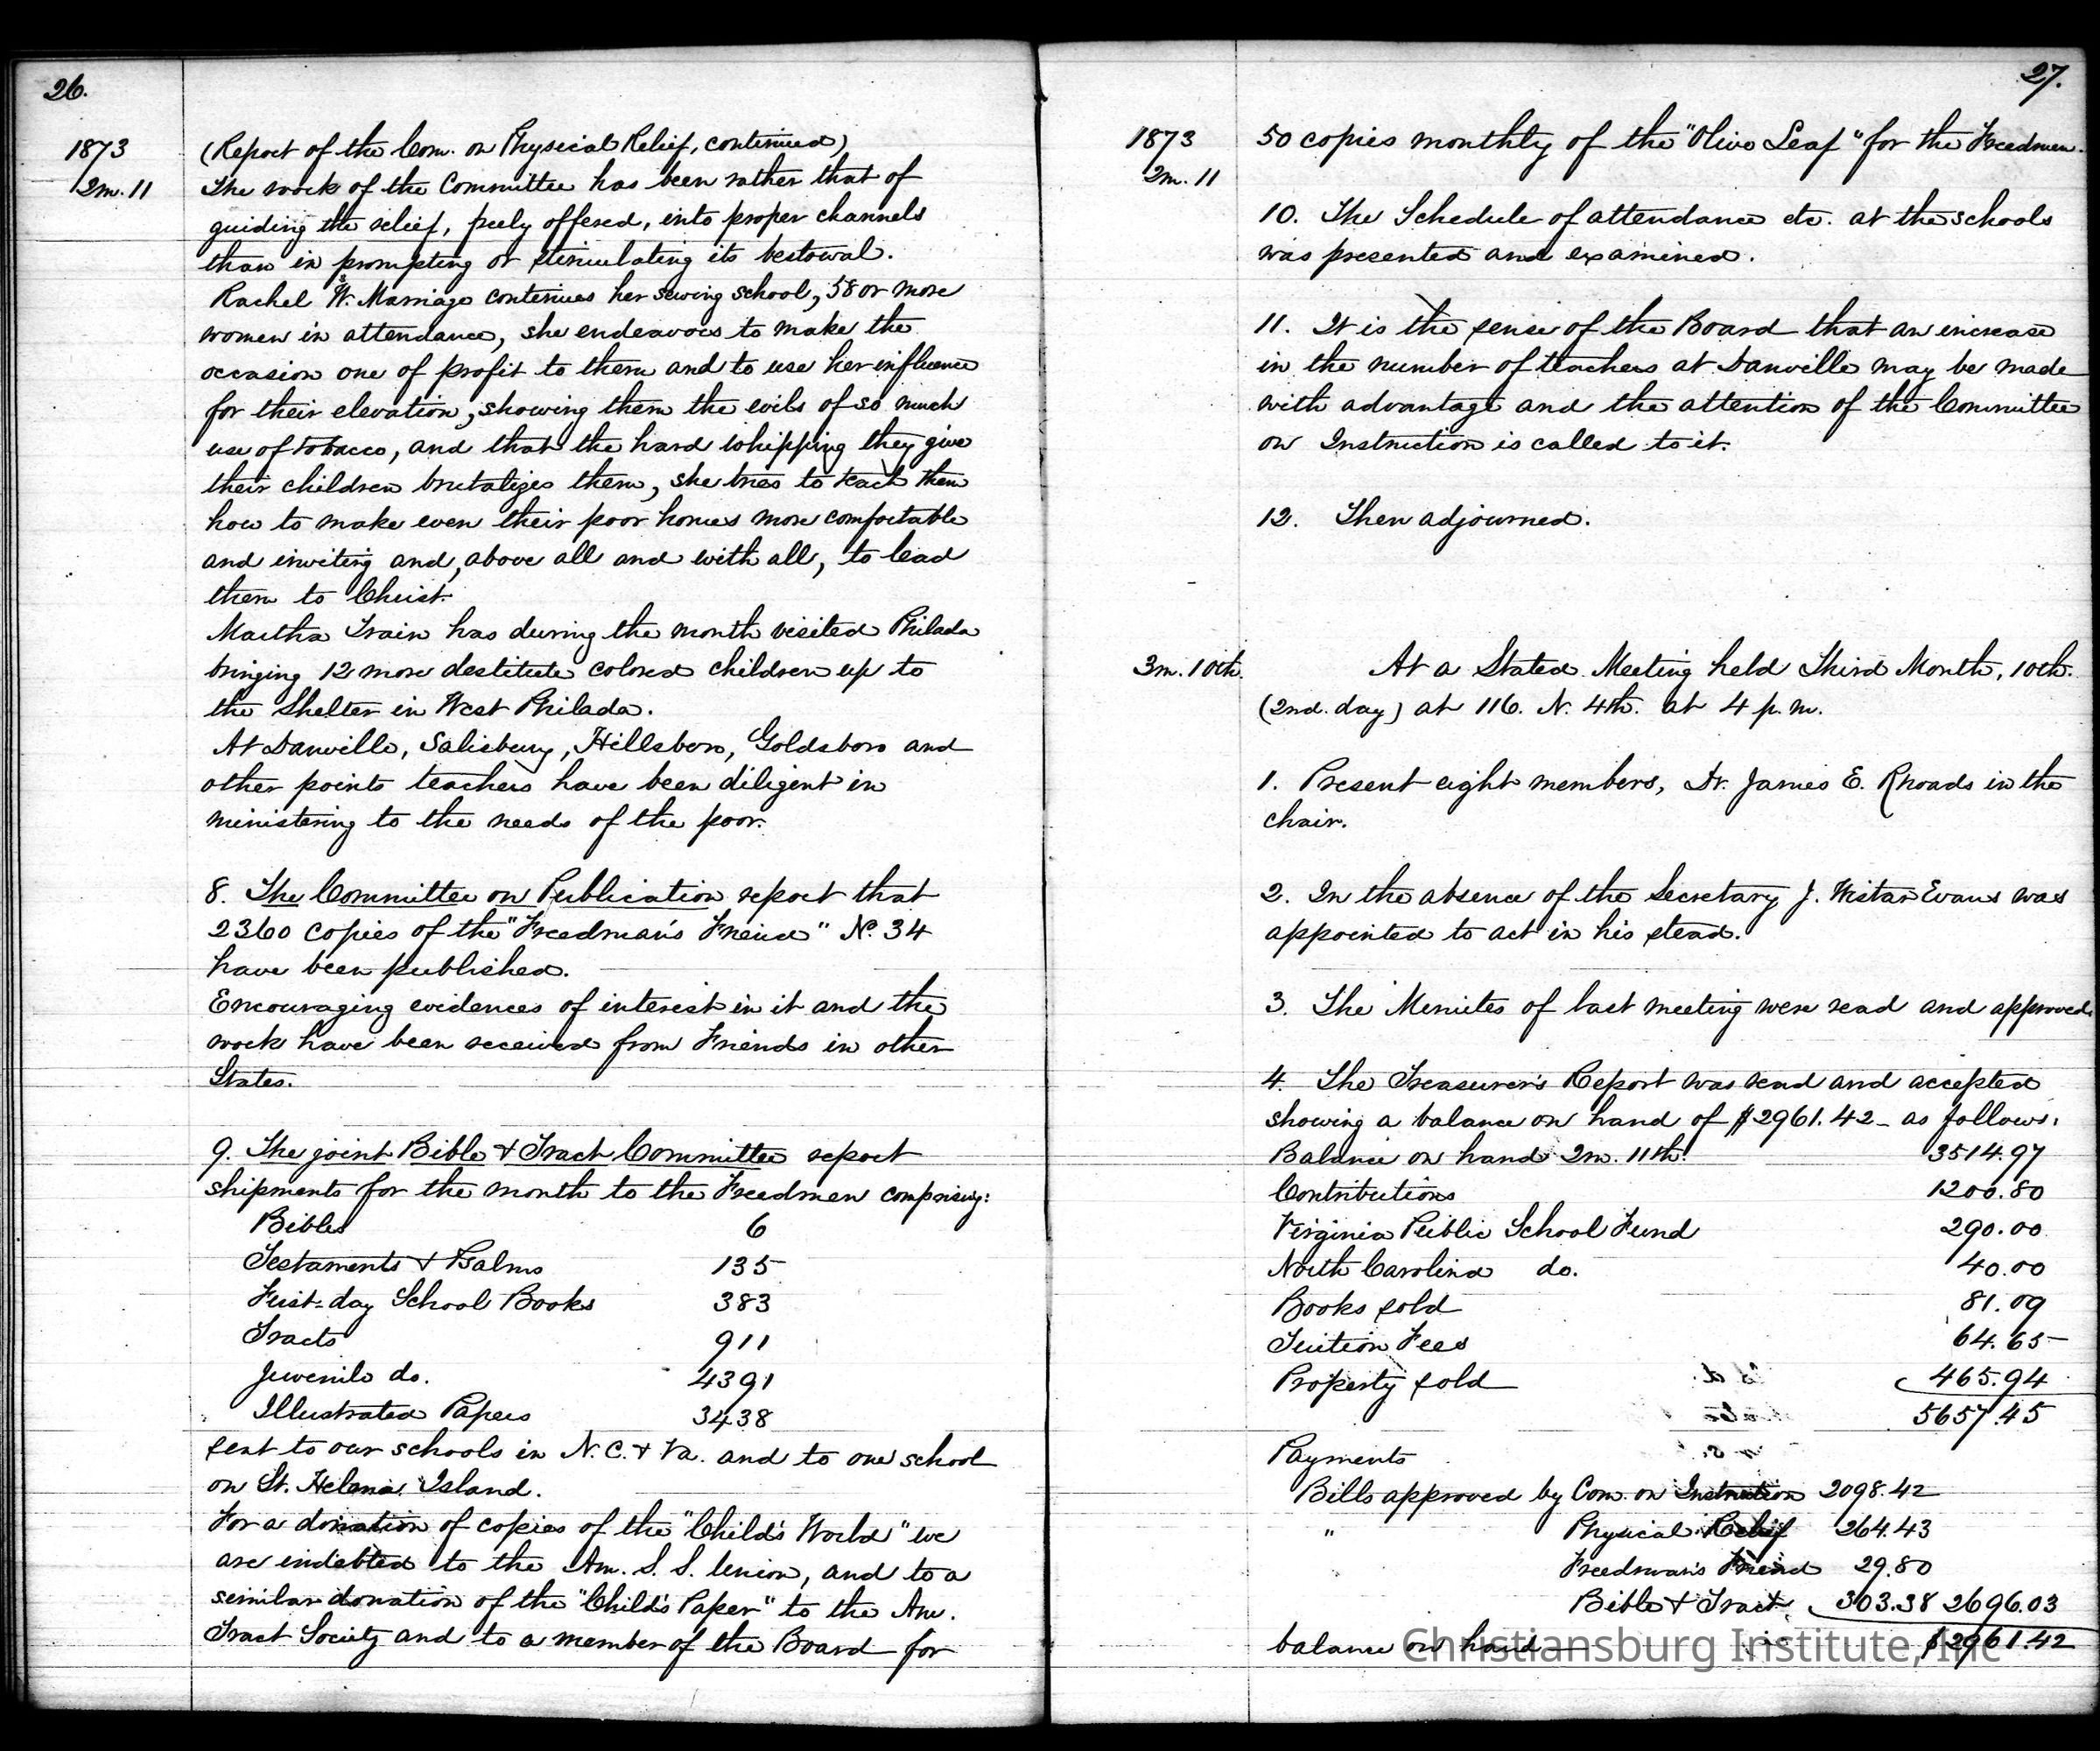 26.
1873
2m. 11
(Report of the Com. on Physical Relief, continued)
The work of the Committee has been rather that of
guiding the relief, freely offered, into proper channels
than in prompting or stimulating its bestowal.
Rachel W. Marriage continues her sewing school, 58 or more
women in attendance, she endeavors to make the
occasion one of profit to them and to use her influence
for their elevation, showing them the evils of so much
use of tobacco, and that the hard whipping they give
their children brutalizes them, she tries to teach them
how to make even their poor homes more comfortable
and inviting and, above all and with all, to lead
them to Christ.
Martha Train has during the month visited Philada
bringing 12 more destitute colored children up to
the Shelter in West Philada.
At Danville, Salisbury, Hillsboro, Goldsboro and
other points teachers have been diligent in
ministering to the needs of the poor.
8. The Committee on Publication report that
2360 copies of the "Freedman's Friend" No. 34
have been published.
Encouraging evidences of interest in it and the
work have been received from Friends in other
States.
9. The joint Bible & Tract Committee report
shipments for the month to the Freedmen comprising:
Bibles 6
Testaments & Psalms 135
First-day School Books 383
Tracts 911
Juvenile do. 4391
Illustrated Papers 3438
sent to our schools in N.C. & Va. and to one school
on St. Helena Island.
For a donation of copies of the "Child's World" we
are indebted to the Am. S. S. Union, and to a
similar donation of the "Child's Paper" to the Am.
Tract Society and to a member of the Board for
27.
1873
2m. 11
50 copies monthly of the "Olive Leaf" for the Freedmen.
10. The Schedule of attendance etc. at the schools
was presented and examined.
11. It is the sense of the Board that an increase
in the number of teachers at Danville may be made
with advantage and the attention of the Committee
on Instruction is called to it.
12. Then adjourned.
3m. 10th.
At a Stated Meeting held Third Month, 10th.
(2nd. day) at 116. N. 4th. at 4 p.m.
1. Present eight members, Dr. James E. Rhoads in the
chair.
2. In the absence of the Secretary J. Wistar Evans was
appointed to act in his stead.
3. The Minutes of last meeting were read and approved.
4. The Treasurer's Report was read and accepted
showing a balance on hand of $2961.42 - as follows:
Balance on hand 2m. 11th. 3514.97
Contributions 1200.80
Virginia Public School Fund 290.00
North Carolina do. 40.00
Books sold 81.09
Tuition Fees 64.65
Property sold 465.94
5657.45
Payments
Bills approved by Com. on Instruction 2098.42
" Physical Relief 264.43
" Freedman's Friend 29.80
Bible & Tract 303.38 2696.03
balance on hand — $2961.42
Christiansburg Institute, Inc